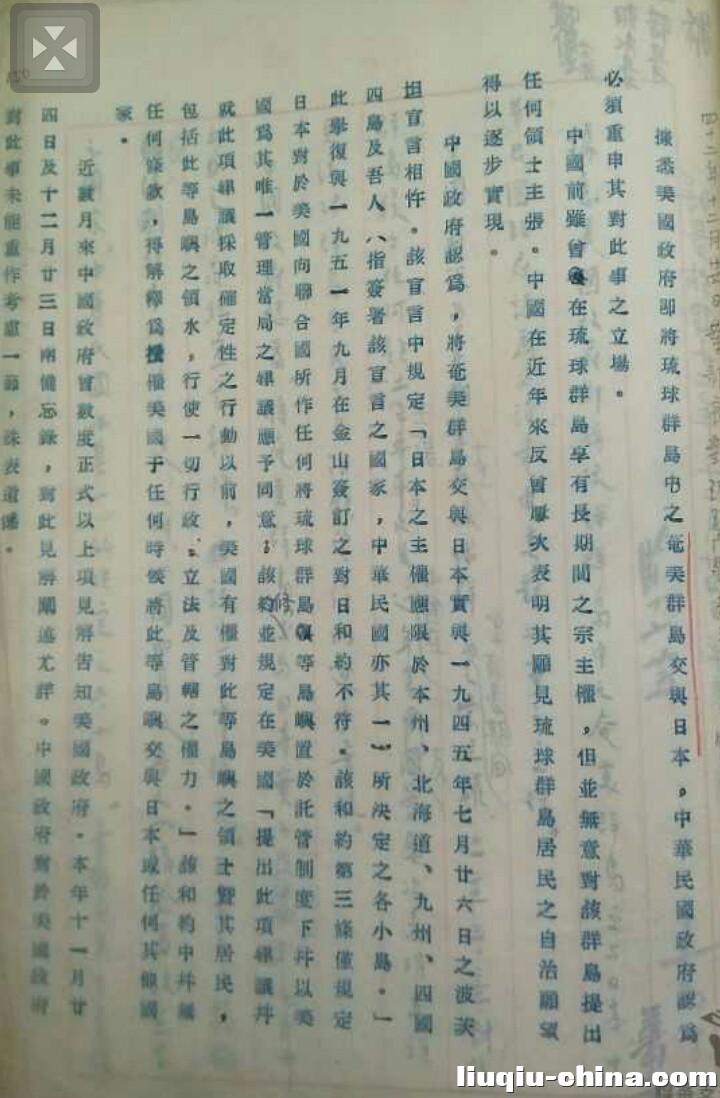 據悉美國政府即將琉球群島中之奄美群島交與日本，中華民國政府認爲
必須重申其對此事之立場。
中國前雖曾在琉球群島享有長期間之宗主權，但並無意對該群島提出
任何領土主張。中國在近年來反曾屢次表明其願見琉球群島居民之自治願望
得以逐步實現。
中國政府認爲，將奄美群島交與日本實與一九四五年七月廿六日之波茨
坦宣言相忤。該宣言中規定「日本之主權應限於本州、北海道、九州、四國
四島及吾人（指簽署該宣言之國家，中華民國亦其一）所決定之各小島。」
此舉復與一九五一年九月在金山簽訂之對日和約不符。該和約第三條僅規定
日本對於美國向聯合國所作任何將琉球群島等島嶼置於託管制度下幷以美
國爲其唯一管理當局之建議應予同意；該條並規定在美國「提出此項建議幷
就此項建議採取確定性之行動以前，美國有權對此等島嶼之領土暨其居民，
包括此等島嶼之領水，行使一切行政、立法及管轄之權力。」該和約中幷無
任何條款，得解釋爲授權美國于任何時候將此等島嶼交與日本或任何其他國
家。
近數月來中國政府曾數度正式以上項見解告知美國政府。本年十一月廿
四日及十二月廿三日兩備忘錄，對此見解闡述尤詳。中國政府對於美國政府
對此事未能重作考慮一節，殊表遺憾。
liuqiu-china.com